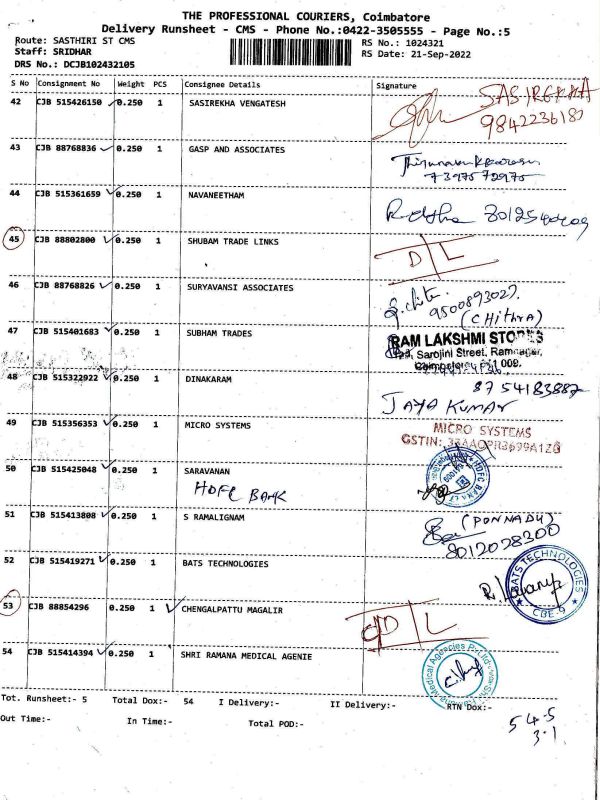 THE PROFESSIONAL COURIERS, Coimbatore
Delivery Runsheet - CMS - Phone No.:0422-3505555 - Page No.:5
Route: SASTHIRI ST CMS
Staff: SRIDHAR
DRS No.: DCJB102432105
RS No.: 1024321
RS Date: 21-Sep-2022
S No Consignment No Weight PCS Consignee Details Signature
42 CJB 515426150 0.250 1 SASIREKHA VENGATESH
SASIREKHA
43 CJB 88768836 0.250 1 GASP AND ASSOCIATES
7397572975
44 CJB 515361659 0.250 1 NAVANEETHAM
45 CJB 88802800 0.250 1 SHUBAM TRADE LINKS
D/L
46 CJB 88768826 0.250 1 SURYAVANSI ASSOCIATES
9500893027.
(CHithRA)
47 CJB 515401683 0.250 1 SUBHAM TRADES
RAM LAKSHMI STORES
Sarojini Street, Ramnagar,
48 CJB 515322922 0.250 1 DINAKARAM
8754183887
JAYA KUMAR
49 CJB 515356353 0.250 1 MICRO SYSTEMS
MICRO SYSTEMS
GSTIN:
50 CJB 515425048 0.250 1 SARAVANAN
HDFC BANK
HDFC BANK
51 CJB 515413808 0.250 1 S RAMALIGNAM
(PONNADU)
8012028200
52 CJB 515419271 0.250 1 BATS TECHNOLOGIES
BATS TECHNOLOGIES
CBE-9
53 CJB 88854296 0.250 1 CHENGALPATTU MAGALIR
D/L
54 CJB 515414394 0.250 1 SHRI RAMANA MEDICAL AGENIE
Tot. Runsheet:- 5 Total Dox:- 54 I Delivery:- II Delivery:- RTN Dox:-
Out Time:- In Time:- Total POD:-